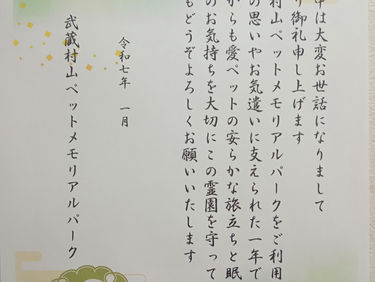 中は大変お世話になりまして
り御礼申し上げます
村山ペットメモリアルパークをご利用
の思いやお気遣いに支えられた一年で
からも愛ペットの安らかな旅立ちと眠
のお気持ちを大切にこの霊園を守って
もどうぞよろしくお願いいたします
令和七年 一月
武蔵村山ペットメモリアルパーク